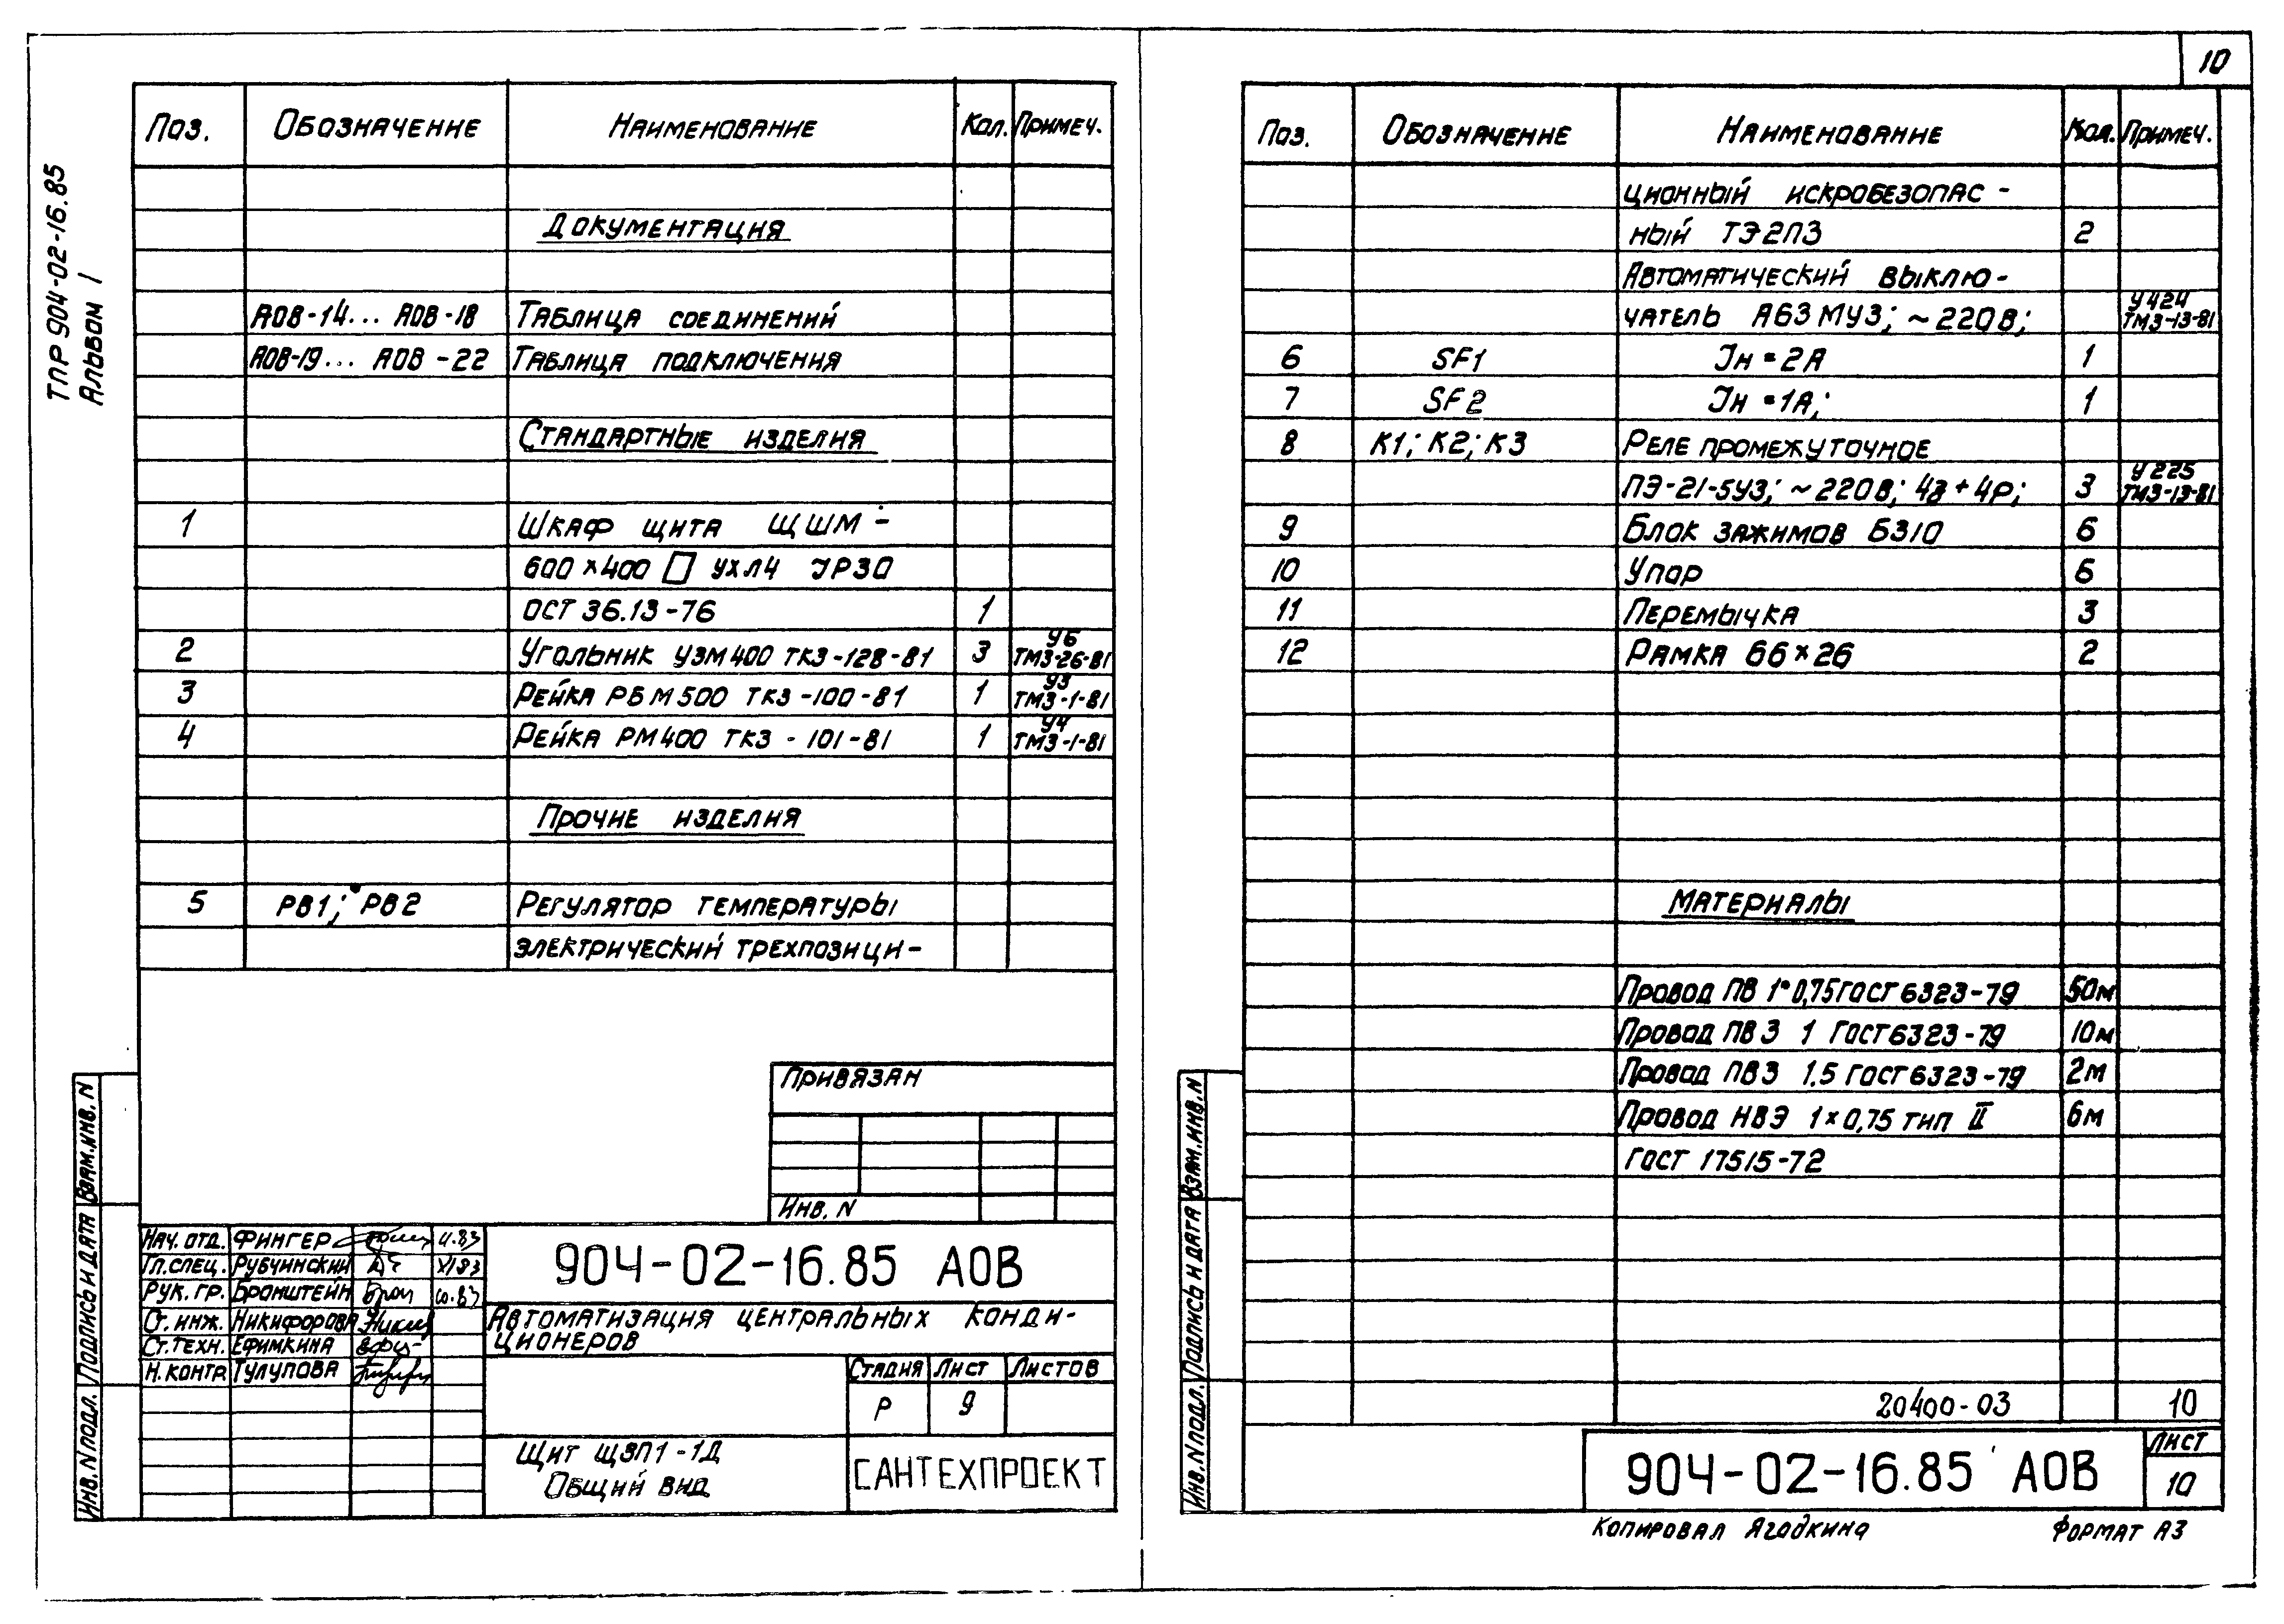 10
ТПР 904-02-16.85
Альбом I
Поз. Обозначение Наименование Кол. Примеч.
Документация
АОВ-14... АОВ-18 Таблица соединений
АОВ-19... АОВ-22 Таблица подключения
Стандартные изделия
1 Шкаф щита ЩШМ-
600×400 □ УХЛ4 IP30
ОСТ 36.13-76 1
2 Угольник УЗМ400 ТКЗ-128-81 3 У6 ТМ3-26-81
3 Рейка РБМ500 ТКЗ-100-81 1 У3 ТМ3-1-81
4 Рейка РМ400 ТКЗ-101-81 1 У4 ТМ3-1-81
Прочие изделия
5 РВ1; РВ2 Регулятор температуры
электрический трехпозици-
Привязан
Инв. N
Взам.инв. N
Подпись и дата
Инв.N подл.
Нач. отд. Фингер
Гл.спец. Рубчинский XI83
Рук. гр. Бронштейн
Ст. инж. Никифорова
Ст.техн. Ефимкина
Н.контр. Тулупова
904-02-16.85 АОВ
Автоматизация центральных конди-
ционеров
Стадия Лист Листов
Р 9
Щит ЩЗП1-1Д
Общий вид
САНТЕХПРОЕКТ
Поз. Обозначение Наименование Кол. Примеч.
ционный искробезопас-
ный ТЭ2П3 2
Автоматический выклю-
чатель А63МУ3; ~220В; У424 ТМ3-13-81
6 SF1 Iн=2А 1
7 SF2 Iн=1А; 1
8 К1; К2; К3 Реле промежуточное
ПЭ-21-5У3; ~220В; 4з+4р; 3 У225 ТМ3-13-81
9 Блок зажимов БЗ10 6
10 Упор 6
11 Перемычка 3
12 Рамка 66×26 2
Материалы
Провод ПВ 1×0,75 ГОСТ 6323-79 50м
Провод ПВ3 1 ГОСТ 6323-79 10м
Провод ПВ3 1.5 ГОСТ 6323-79 2м
Провод НВЭ 1×0,75 тип II 6м
ГОСТ 17515-72
20400-03 10
Взам.инв.N
Подпись и дата
Инв.N подл.
904-02-16.85 АОВ
Лист
10
Копировал Ягодкина Формат А3